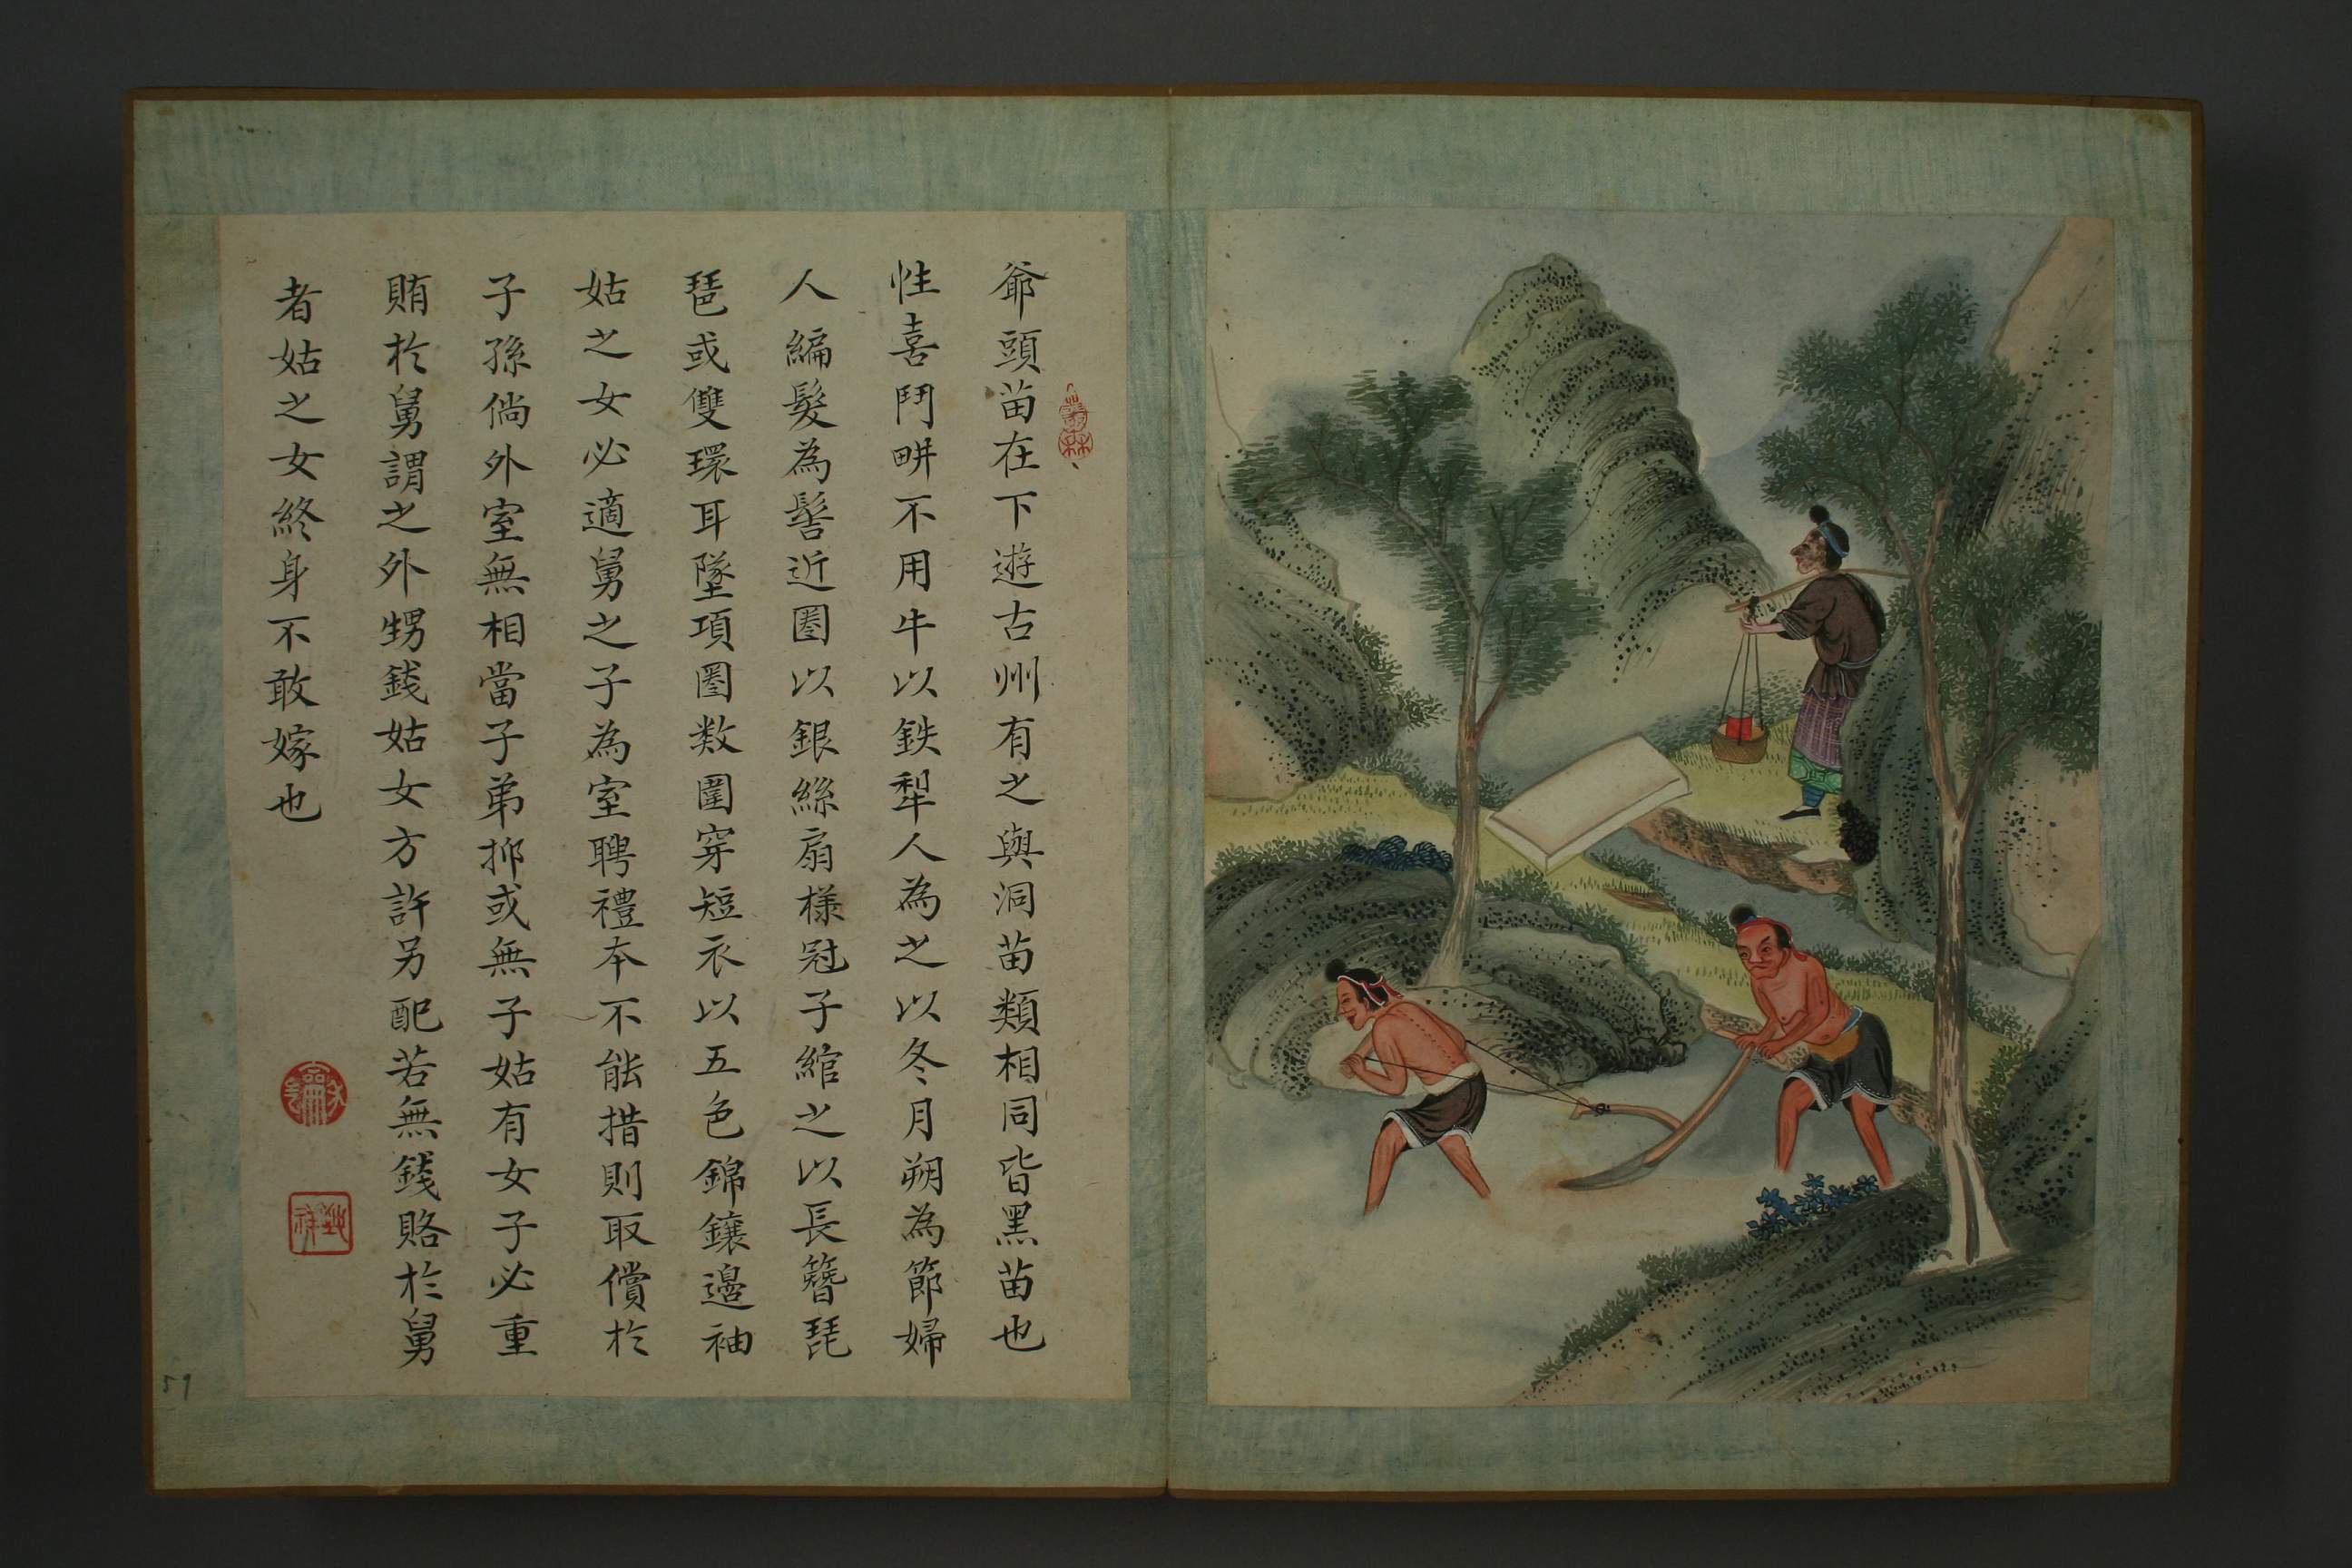 爺頭苗在下遊古州有之與洞苗類相同皆黑苗也
性喜鬥畊不用牛以鉄犁人為之以冬月朔為節婦
人編髮為髻近圈以銀絲扇樣冠子綰之以長簪琵
琶或雙環耳墜項圈数圍穿短衣以五色錦鑲邊袖
姑之女必適舅之子為室聘禮本不能措則取償於
子孫倘外室無相當子弟抑或無子姑有女子必重
賄於舅謂之外甥錢姑女方許另配若無錢賂於舅
者姑之女終身不敢嫁也
59